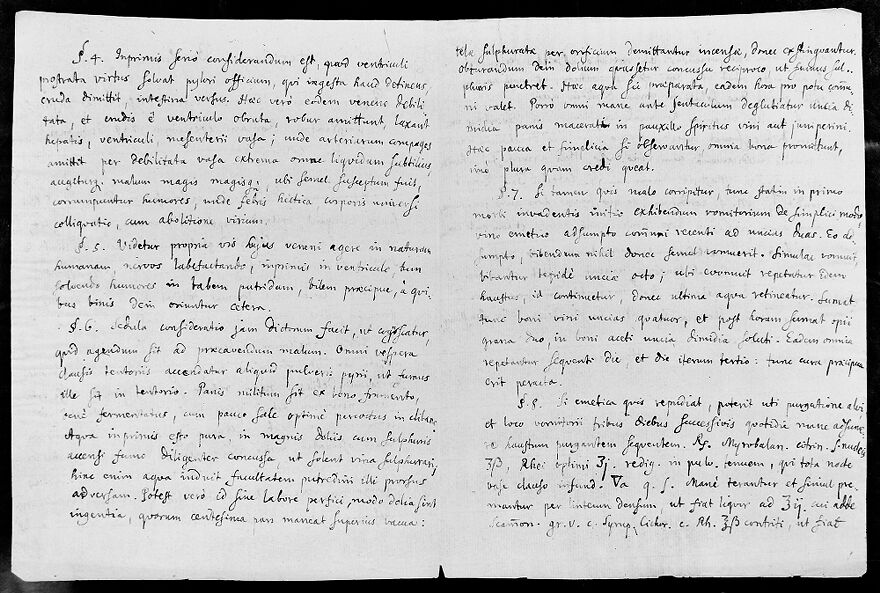 §. 4. Inprimis serio considerandum est, quod ventriculi
prostrata virtus solvat pylori officium, qui ingesta haud detinens,
cruda dimittit, intestina versus. Haec verò eodem veneno debili
tata, et crudis è ventriculo obruta, robur amittunt, laxant
hepatis, ventriculi, mesenterii vasa; unde arteriarum compages
amittit per debilitata vasa extrema omne liquidum subtilius
augetur malum magis magisq; ubi semel susceptum fuit,
corrumpuntur humores, unde febris hectica corporis universi
colliquatio, cum abolitione virium.
§. 5. Videtur propria vis hujus veneni agere in naturam
humanam, nervos labefactando, inprimis in ventriculo, tum
solvendo humores in tabem putridam, bilem praecipue, à qui
bus binis dein oriuntur cetera.
§. 6. Sedula consideratio jam dictorum facit, ut cognoscatur,
quid agendum sit ad praecavendum malum. Omni vespera
clausis tentoriis accendatur aliquid pulveris pyrii, ut fumus
ille sit in tentorio. Panis militum sit ex bono frumento,
bene fermentatus, cum pauco sale optime percoctus in clibano
Aqua inprimis esto pura, in magnis doliis cum sulphuris
accensi fumo diligenter concussa, ut solent vina sulphurari,
hinc enim aqua induit facultatem putredini illi prorsus
adversam. Potest verò id sine labore perfici, modo dolia sint
ingentia, quorum centesima pars maneat superius vacua:
tela sulphurata per orificium demittantur incensa, donec exstinguantur.
Obturandum dein dolium quassetur concussu reciproco, ut fumus sul-
phuris penetret. Haec aqua sic praeparata, eadem hora pro potu conve
ni valet. Porrò omni mane ante jentaculum deglutiatur uncia di
midia panis macerati in pauxillo spiritus vini aut juniperini.
Haec pauca et simplicia si observantur, omnia bona promittunt,
imò plura quam credi queat.
§. 7. Si tamen quis malo corripitur, tunc statim in primo
morbi invadentis initio exhibendum vomitorium de simplici modo
vino emetico adsumpto communi recenti ad uncias duas. Eo as
sumpto, bibendum nihil donec semel vomuerit. Simulac vomuit,
bibantur tepidae unciae octo; ubi evomuit repetatur idem
haustus, id continuetur, donec ultima aqua retineatur. Sumat
tunc boni vini uncias quatuor, et post horam sumat opii
grana duo, in boni aceti uncia dimidia soluti. Eadem omnia
repetantur sequenti die, et die iterum tertio: tunc cura praecipua
erit peracta.
§. 8. Si emetica quis repudiat, poterit uti purgatione alvi
et loco vomitorii tribus diebus successivis quotidie mane adsume
re haustum purgantem sequentem. Rx. Myrobalan. citrin. s. nucleis
ʒß, Rhei optimi ʒj. redig. in pulv. tenuem, qui tota nocte
vase clauso infund. ▽a q. s. Mane terantur et simul pre-
mantur per linteum densum, ut fiat liquor ad ℥ij. cui adde
Scamon. gr. v. c. Syrup. Cichor. c. Rh. ʒß contriti, ut fiat